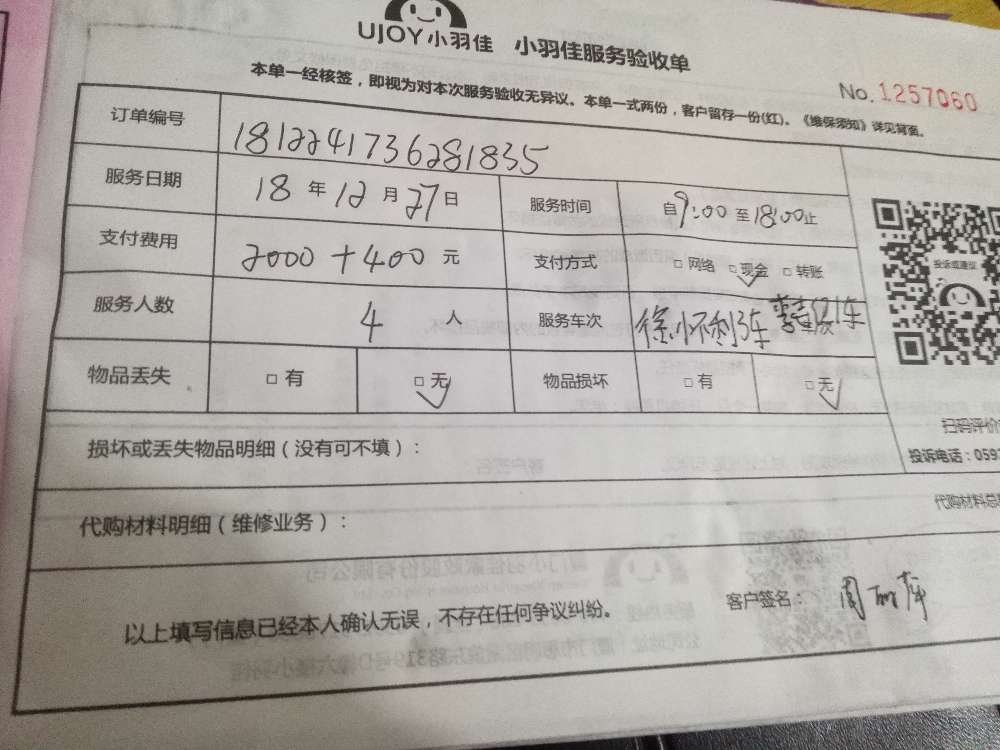 UJOY小羽佳 小羽佳服务验收单
No.1257060
本单一经核签，即视为对本次服务验收无异议。本单一式两份，客户留存一份(红)。《维保须知》详见背面。
订单编号 1812241736281835
服务日期 18 年 12 月 27 日 服务时间 自9:00至18:00止
支付费用 2000+400 元 支付方式 □ 网络 □ 现金 □ 转账
投诉或建议
服务人数 4 人 服务车次 徐怀利3车
物品丢失 □ 有 □ 无 物品损坏 □ 有 □ 无
损坏或丢失物品明细（没有可不填）：
扫码评价
投诉电话：059
代购材料明细（维修业务）：
代购材料总
以上填写信息已经本人确认无误，不存在任何争议纠纷。
客户签名：周丽萍